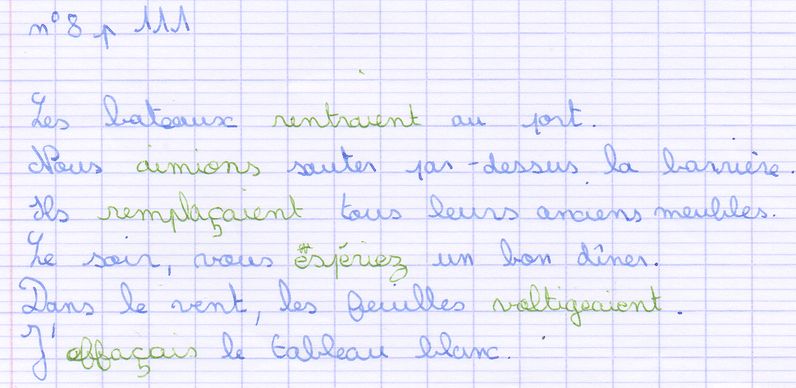 n° 8 p 111
Les bateaux rentraient au port.
Nous aimions sauter par-dessus la barrière.
Ils remplaçaient tous leurs anciens meubles.
Le soir, vous espériez un bon dîner.
Dans le vent, les feuilles voltigeaient.
J'effaçais le tableau blanc.